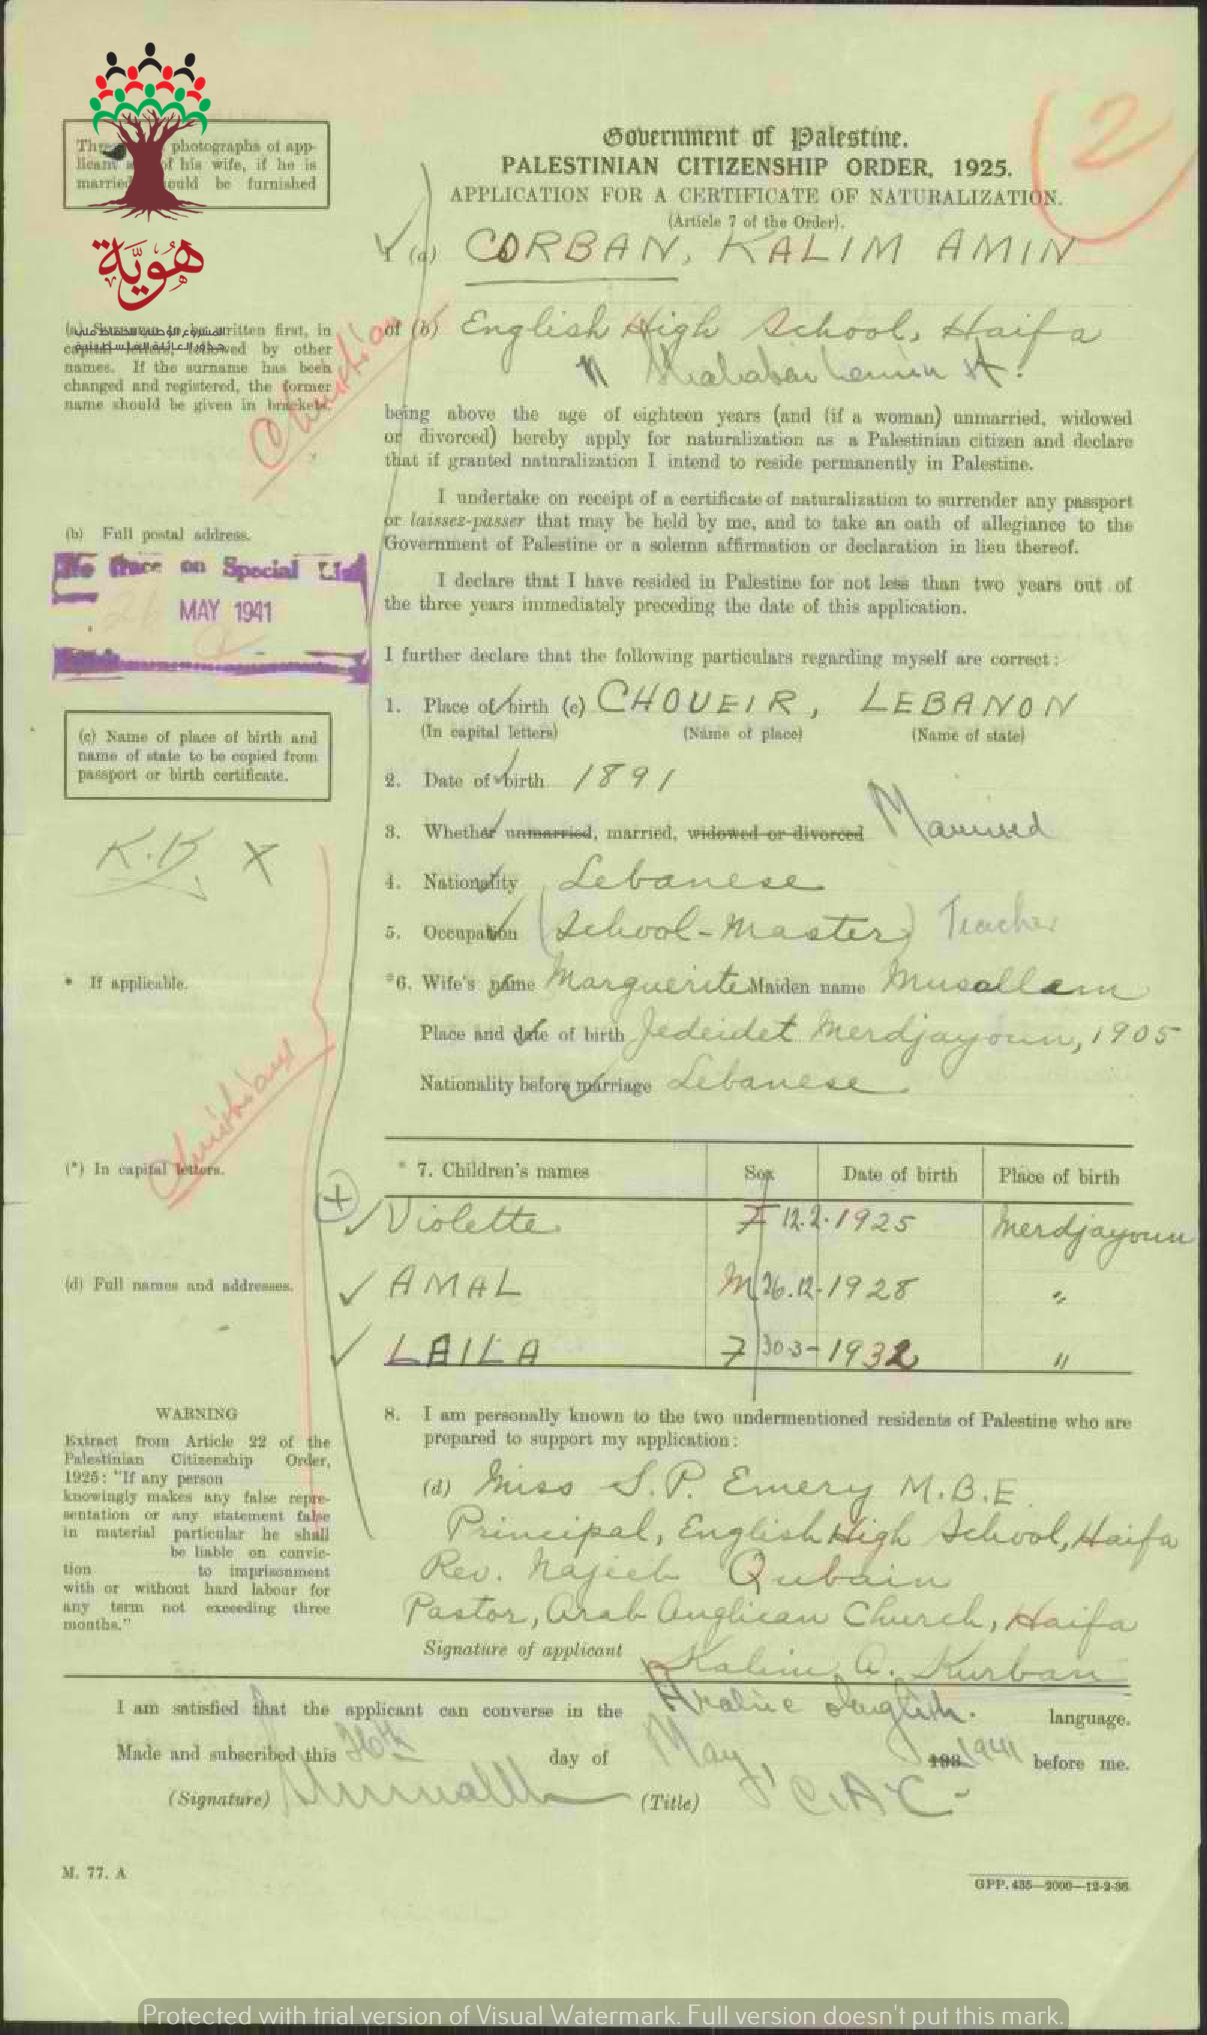 Government of Palestine.
PALESTINIAN CITIZENSHIP ORDER, 1925.
APPLICATION FOR A CERTIFICATE OF NATURALIZATION.
(Article 7 of the Order).
2
photographs of app-
of his wife, if he is
married be furnished
هوية
المشروع الوطني للحفاظ على
جذور العائلة الفلسطينية
(a) CORBAN, KALIM AMIN
written first, in
capital letters, followed by other
names. If the surname has been
changed and registered, the former
name should be given in brackets.
Christian
of (b) English High School, Haifa
St.
being above the age of eighteen years (and (if a woman) unmarried, widowed
or divorced) hereby apply for naturalization as a Palestinian citizen and declare
that if granted naturalization I intend to reside permanently in Palestine.
I undertake on receipt of a certificate of naturalization to surrender any passport
or laissez-passer that may be held by me, and to take an oath of allegiance to the
Government of Palestine or a solemn affirmation or declaration in lieu thereof.
(b) Full postal address.
No Trace on Special List
26 MAY 1941
I declare that I have resided in Palestine for not less than two years out of
the three years immediately preceding the date of this application.
I further declare that the following particulars regarding myself are correct :
1. Place of birth (c) CHOUEIR, LEBANON
(In capital letters) (Name of place) (Name of state)
(c) Name of place of birth and
name of state to be copied from
passport or birth certificate.
2. Date of birth 1891
3. Whether unmarried, married, widowed or divorced Married
K.B X
4. Nationality Lebanese
5. Occupation (School-Master) Teacher
* If applicable.
*6. Wife's name Marguerite Maiden name Musallam
Place and date of birth Jedeidet Merdjayoun, 1905
Nationality before marriage Lebanese
Christians
(*) In capital letters.
* 7. Children's names Sex Date of birth Place of birth
Violette F 12.2.1925 Merdjayoun
AMAL M 26.12-1928 "
LAILA F 30-3-1932 "
(d) Full names and addresses.
8. I am personally known to the two undermentioned residents of Palestine who are
prepared to support my application :
(d) Miss S.P. Emery M.B.E.
Principal, English High School, Haifa
Rev. Najeeb Qubain
Pastor, Arab Anglican Church, Haifa
WARNING
Extract from Article 22 of the
Palestinian Citizenship Order,
1925: "If any person
knowingly makes any false repre-
sentation or any statement false
in material particular he shall
be liable on convic-
tion to imprisonment
with or without hard labour for
any term not exceeding three
months."
Signature of applicant Kalim A. Kurban
I am satisfied that the applicant can converse in the Arabic English. language.
Made and subscribed this 26th day of May, 193 1941 before me.
(Signature) (Title)
M. 77. A
GPP. 435—2000—12-2-36.
Protected with trial version of Visual Watermark. Full version doesn't put this mark.